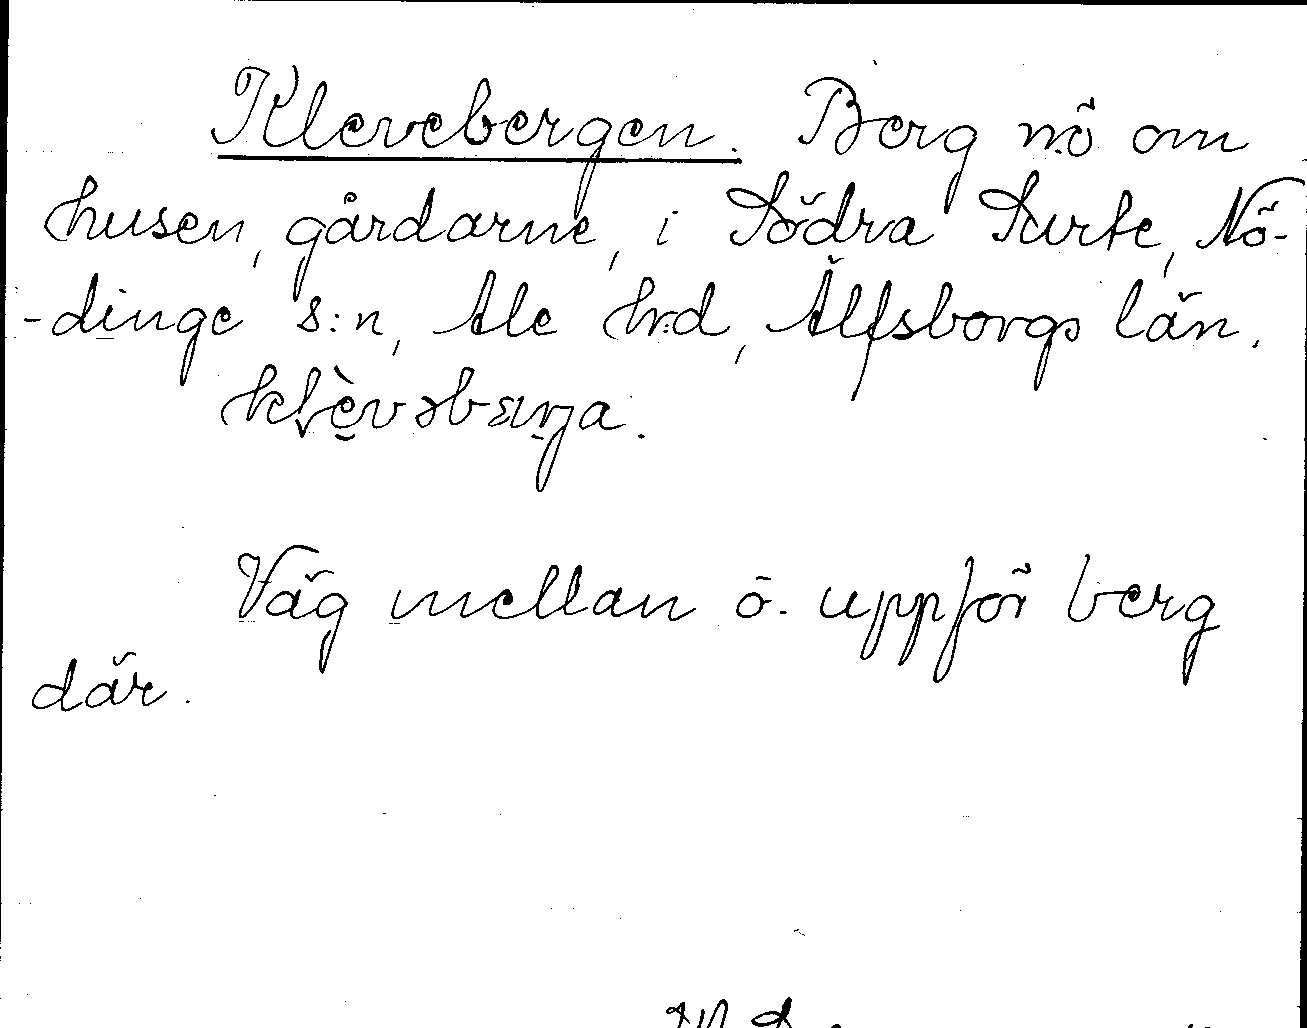 Klevebergen. Berg nö om
husen, gårdarne, i Södra Surte, Nö-
-dinge s:n, Ale hrd, Älfsborgs län.
Väg mellan o. uppför berg
där.